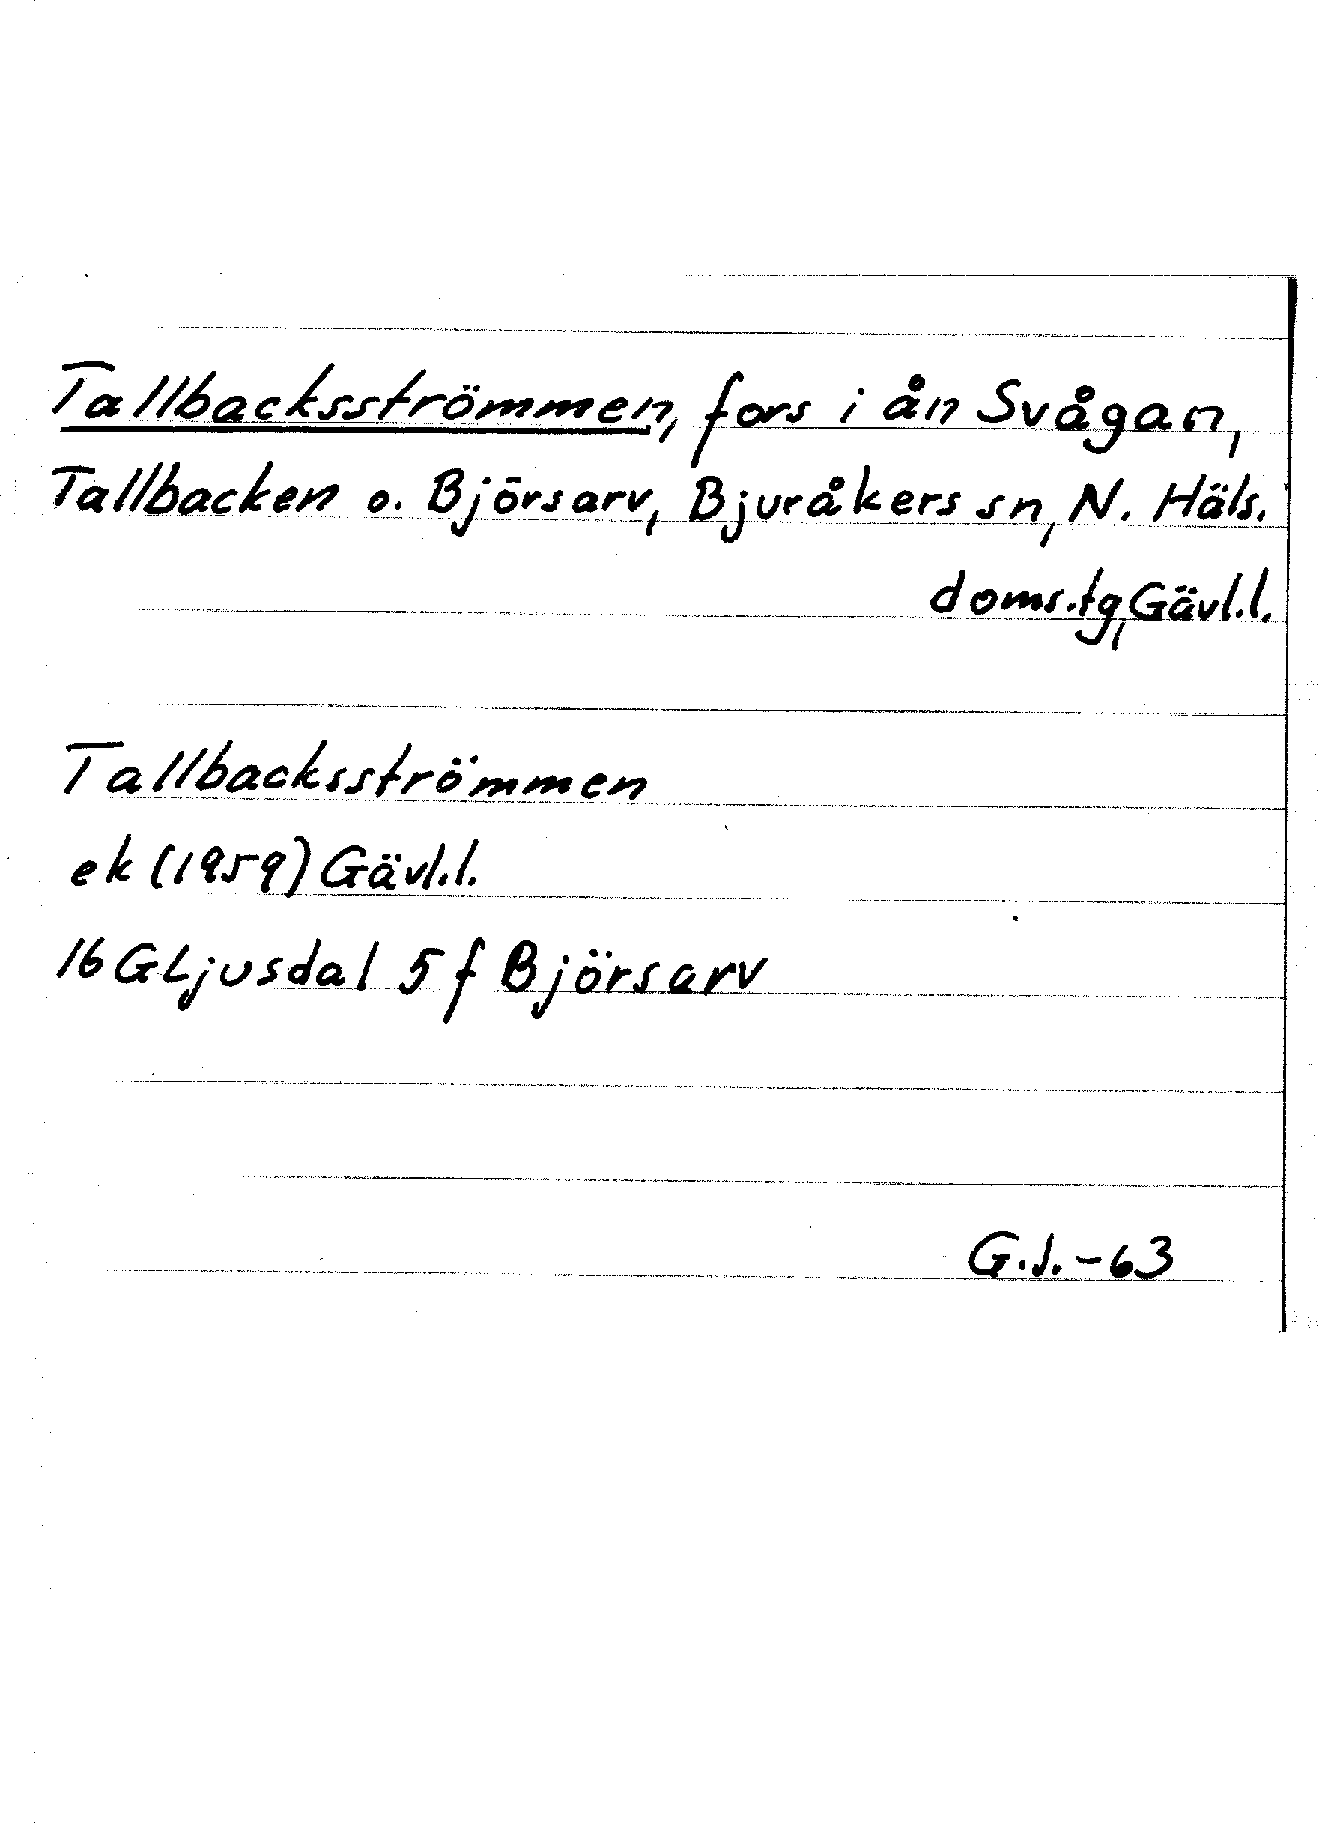 Tallbacksströmmen, fors i ån Svågan,
Tallbacken o. Björsarv, Bjuråkers sn, N. Häls.
doms.tg, Gävl.l.
Tallbacksströmmen
ek (1959) Gävl.l.
16 G Ljusdal 5 f Björsarv
G.J. -63